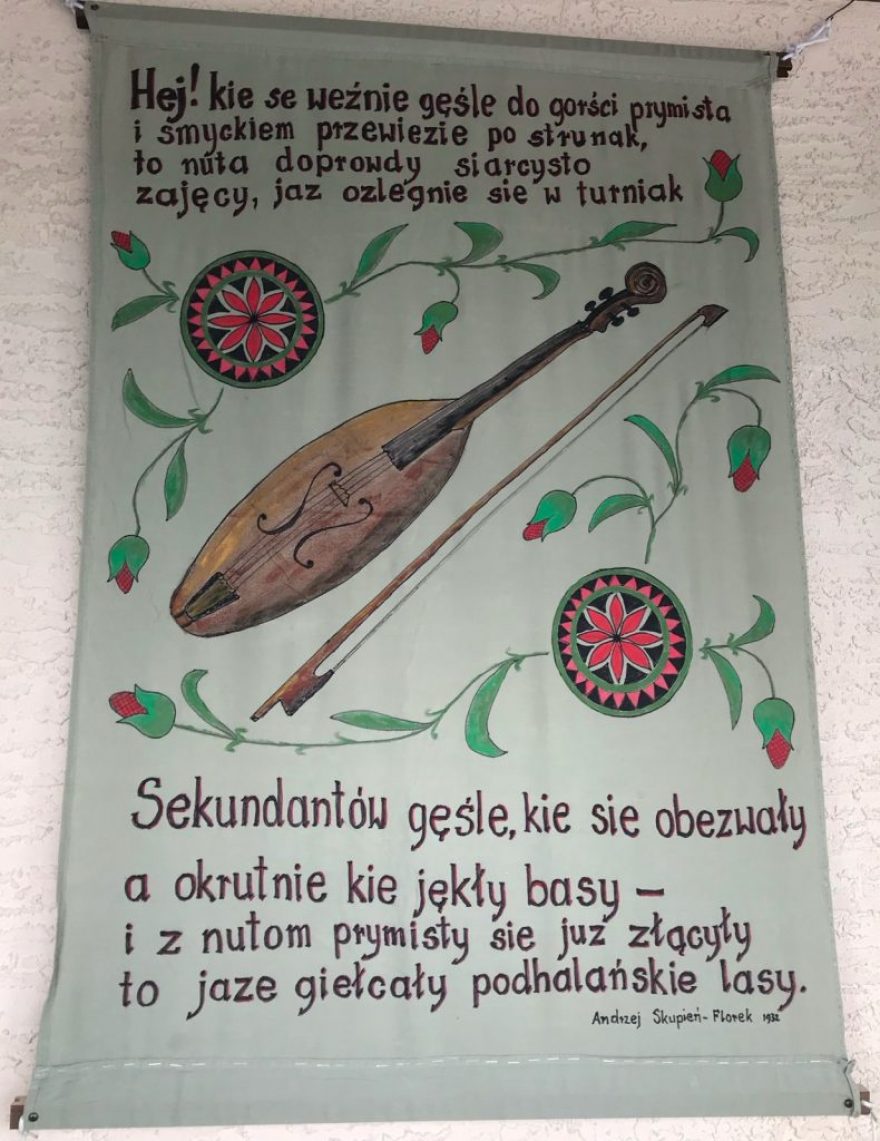 Hej! kie se weźnie gęśle do gorści prymista
i smyckiem przewiezie po strunak,
to nuta doprowdy siarcysto
zajęcy, jaz ozlegnie sie w turniak
Sekundantów gęśle, kie sie obezwały
a okrutnie kie jękły basy –
i z nutom prymisty sie juz złącyły
to jaze giełcały podhalańskie lasy.
Andrzej Skupień-Florek 1932